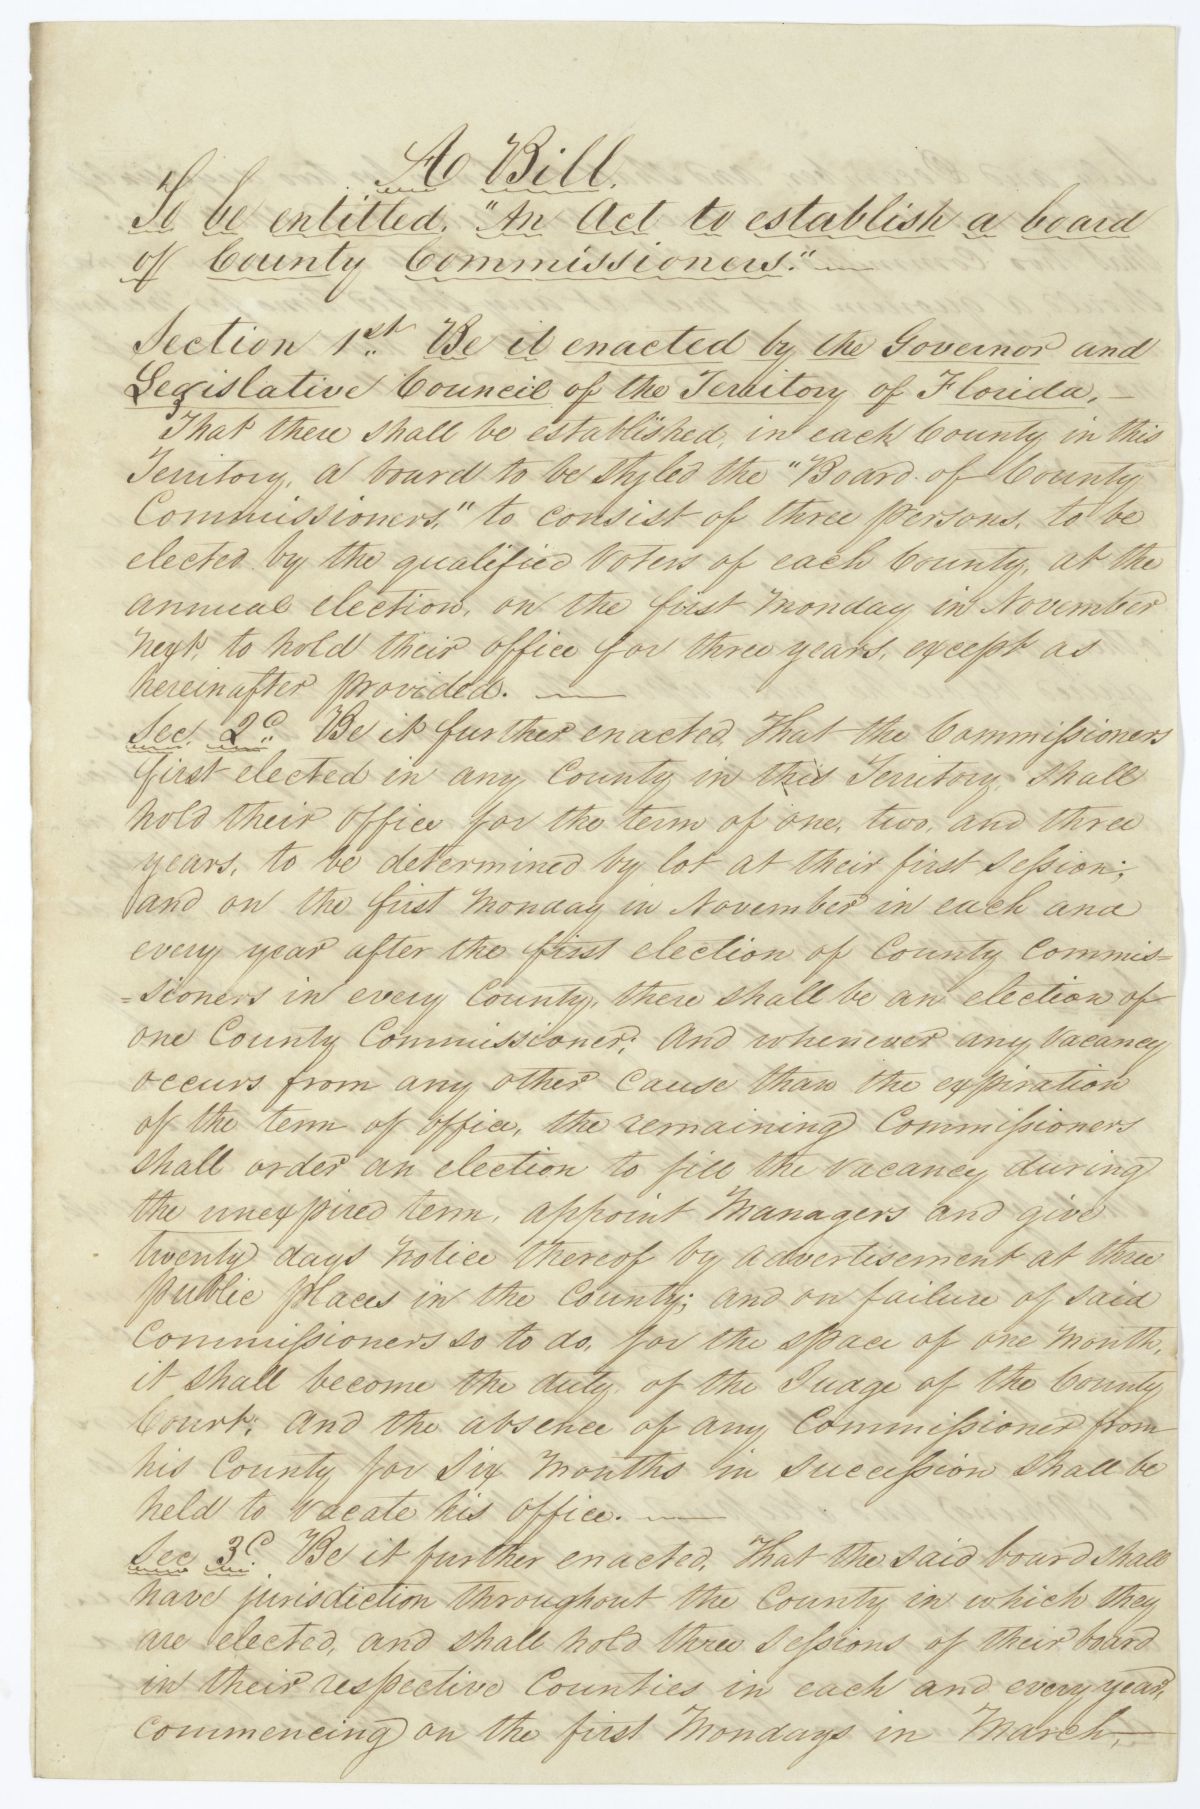 A Bill.
To be entitled, "An Act to establish a board
of County Commissioners."
Section 1st. Be it enacted by the Governor and
Legislative Council of the Territory of Florida,
That there shall be established, in each County in this
Territory, a board to be styled the "Board of County
Commissioners," to consist of three persons, to be
elected by the qualified voters of each County, at the
annual election, on the first Monday in November
next, to hold their office for three years, except as
hereinafter provided.
Sec. 2d. Be it further enacted, That the Commissioners
first elected in any County in this Territory, shall
hold their office for the term of one, two, and three
years, to be determined by lot at their first session;
and on the first Monday in November in each and
every year after the first election of County Commis=
=sioners in every County, there shall be an election of
one County Commissioner; And whenever any vacancy
occurs from any other cause than the expiration
of the term of office, the remaining Commissioners
shall order an election to fill the vacancy during
the unexpired term, appoint Managers and give
twenty days notice thereof by advertisement at three
public places in the County; and on failure of said
Commissioners so to do, for the space of one month,
it shall become the duty of the Judge of the County
Court; And the absence of any Commissioner from
his County for six months in succession shall be
held to vacate his office.
Sec 3d. Be it further enacted, That the said board shall
have jurisdiction throughout the County in which they
are elected, and shall hold three sessions of their board
in their respective Counties in each and every year,
commencing on the first Mondays in March,